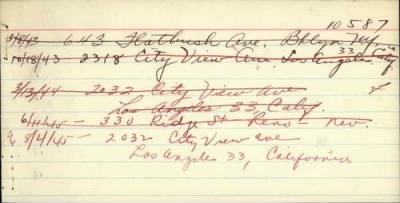 10587
3/15/43 643 Flatbush Ave. Bklyn N.Y.
10/18/43 2318 City View Ave Los Angeles 33, Calif.
3/13/44 2032 City View Ave
Los Angeles 33 Calif.
6/11/45 — 330 Ridge St Reno — Nev.
8/4/45 — 2032 City View ave
Los Angeles 33, California